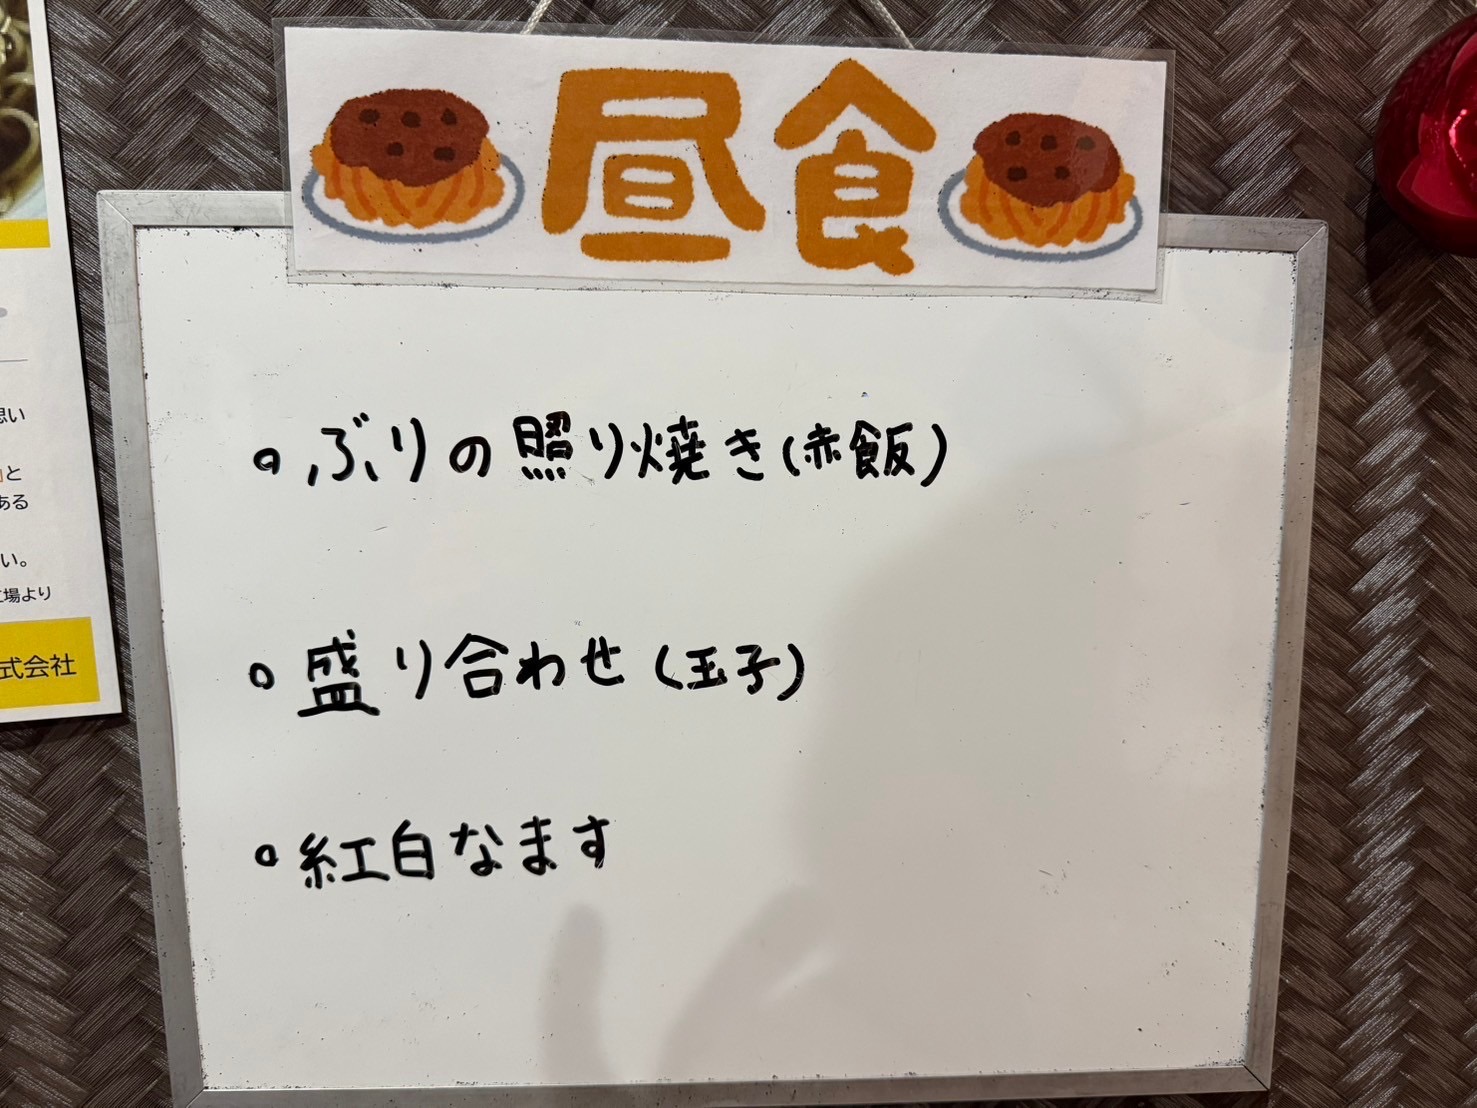 昼食
。ぶりの照り焼き(赤飯)
。盛り合わせ(玉子)
。紅白なます
思い
と
ある
い。
場より
式会社